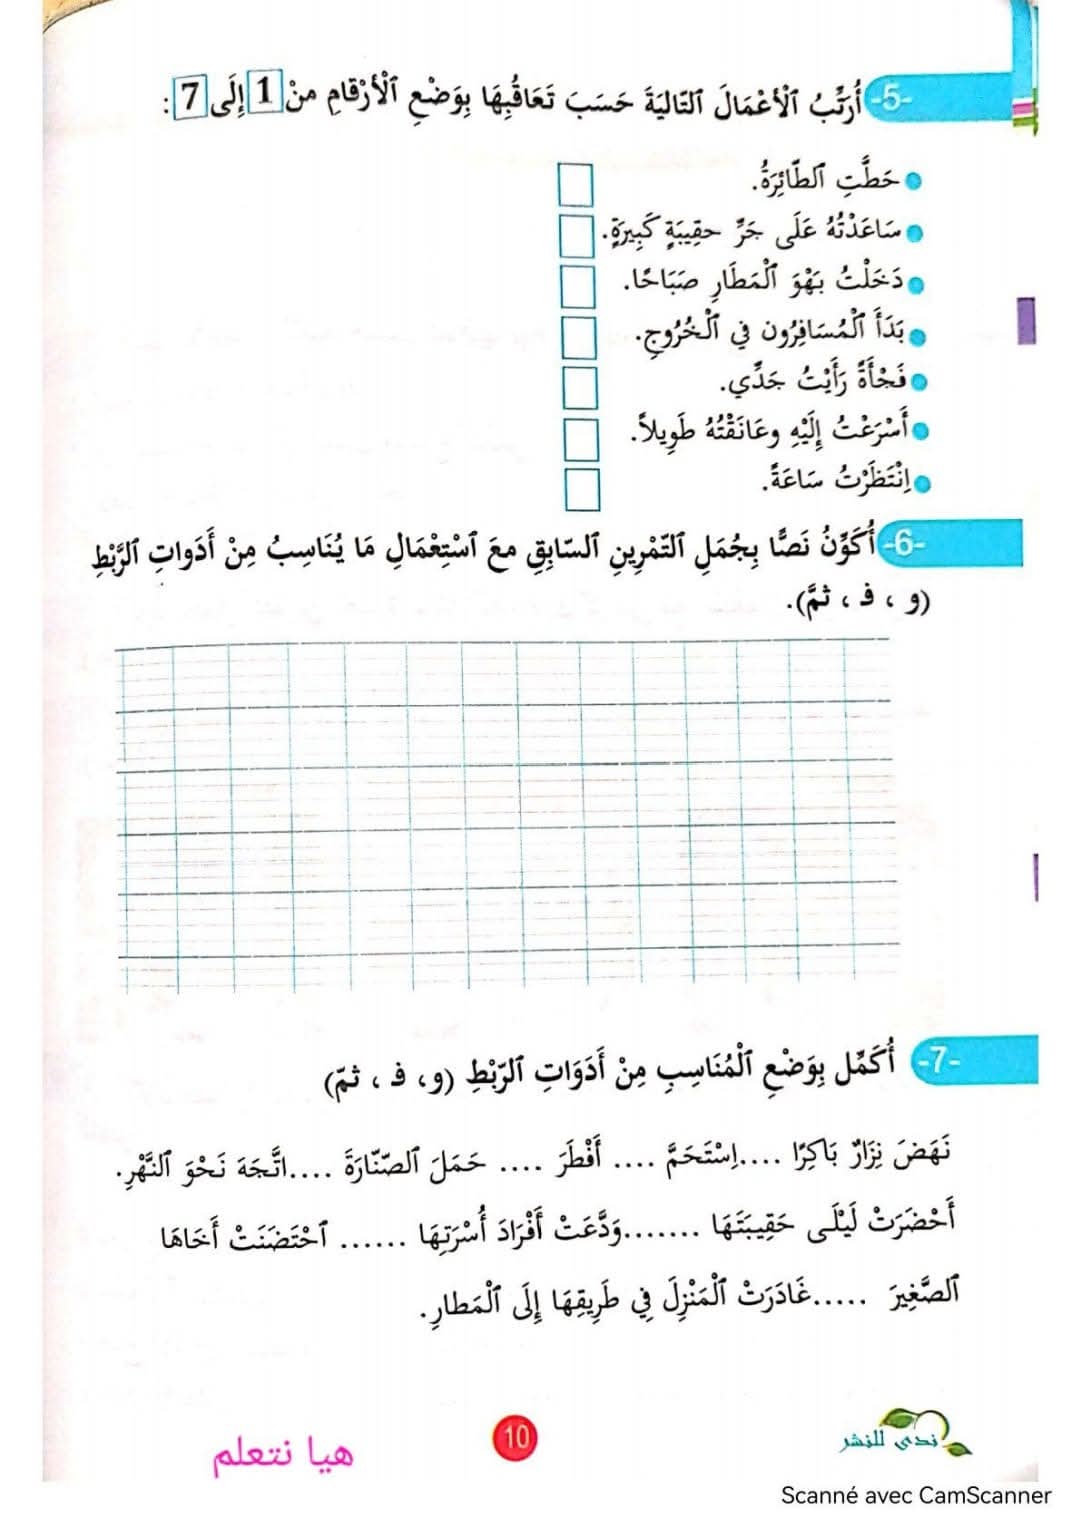 -5- أُرَتِّبُ ٱلْأَعْمَالَ ٱلتَّاليَةَ حَسَبَ تَعَاقُبِهَا بِوَضْعِ ٱلْأَرْقَامِ منْ 1 إِلَى 7 :
حَطَّتِ ٱلطَّائِرَةُ.
سَاعَدْتُهُ عَلَى جَرِّ حقِيبَةٍ كَبِيرَةٍ.
دَخَلْتُ بَهْوَ ٱلْمَطَارِ صَبَاحًا.
بَدَأَ ٱلْمُسَافِرُون في ٱلْخُرُوجِ.
فَجْأَةً رَأَيْتُ جَدِّي.
أَسْرَعْتُ إِلَيْهِ وعَانَقْتُهُ طَوِيلاً.
اِنْتَظَرْتُ سَاعَةً.
-6- أُكَوِّنُ نَصًّا بِجُمَلِ ٱلتَّمْرِينِ ٱلسَّابِقِ معَ ٱسْتِعْمَالِ مَا يُنَاسِبُ مِنْ أَدَواتِ ٱلرَّبْطِ
(و ، فـ ، ثمَّ).
-7- أُكَمِّل بِوَضْعِ ٱلْمُنَاسِبِ مِنْ أَدَوَاتِ ٱلرَّبْطِ (و، فـ ، ثمّ)
نَهَضَ نِزَارٌ بَاكِرًا ....اِسْتَحَمَّ .... أَفْطَرَ .... حَمَلَ ٱلصّنّارَةَ ....اتَّجَهَ نَحْوَ ٱلنَّهْرِ.
أَحْضَرَتْ لَيْلَى حَقِيبَتَهَا .......وَدَّعَتْ أَفْرَادَ أُسْرَتِهَا ...... ٱحْتَضَنَتْ أَخَاهَا
ٱلصَّغِيرَ .....غَادَرَتْ ٱلْمَنْزِلَ فِي طَرِيقِهَا إِلَى ٱلْمَطارِ.
هيا نتعلم
10
ندى للنشر
Scanné avec CamScanner